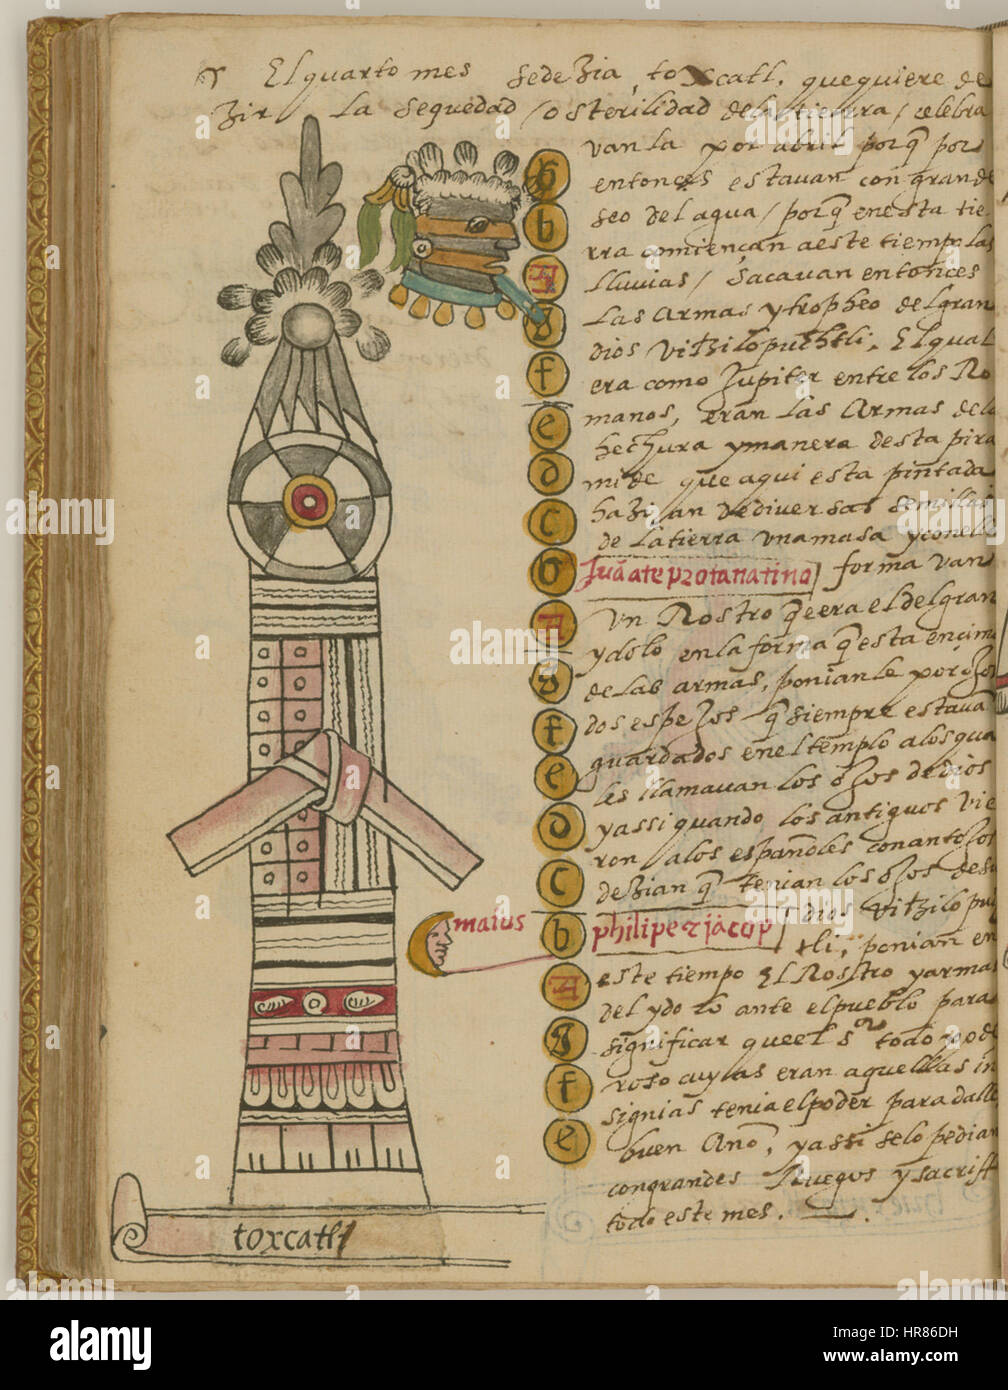 El quarto mes sedezia, toxcatl. que quiere de
zir la sequedad / o sterilidad dela tierra / celebra
van la por abril porq̃ por
entonces estavan con grande
seo del agua / porq̃ en esta tie
rra comiençan a este tiempo las
lluvias / Sacavan entonces
Las Armas y tropheo del gran
dios Vitzilopuchtli, El qual
era como Jupiter entre los Ro
manos, eran las Armas dela
hechura y manera desta pira
mide que aqui esta pintada
hazian de diversas semillas
de la tierra una masa y conella
forma van
Un Rostro q̃ era el del gran
ydolo en la forma q̃ esta encima
de las armas, ponian le por ojos
dos espejos q̃ siempre estavā
guardados en el templo a los qua
les llamavan los ojos de dios
y assi quando los antiguos vie
ron a los españoles con antojos
dezian q̃ tenian los ojos desu
dios Vitzilopuch
tli, ponian en
este tiempo El Rostro y armas
del ydolo ante el pueblo para
significar que el Sor todo pode
roso cuyas eran aquellas in
signias tenia el poder para dalle
buen Año, y assi se lo pedian
con grandes Ruegos y sacriff
todo este mes.
G
b
A
g
f
e
d
c
b
A
g
f
e
d
c
b
A
g
f
e
Juā ate portā latinā
maius
philipe et jacop
toxcatl
alamy
Image ID: HR86DH
www.alamy.com